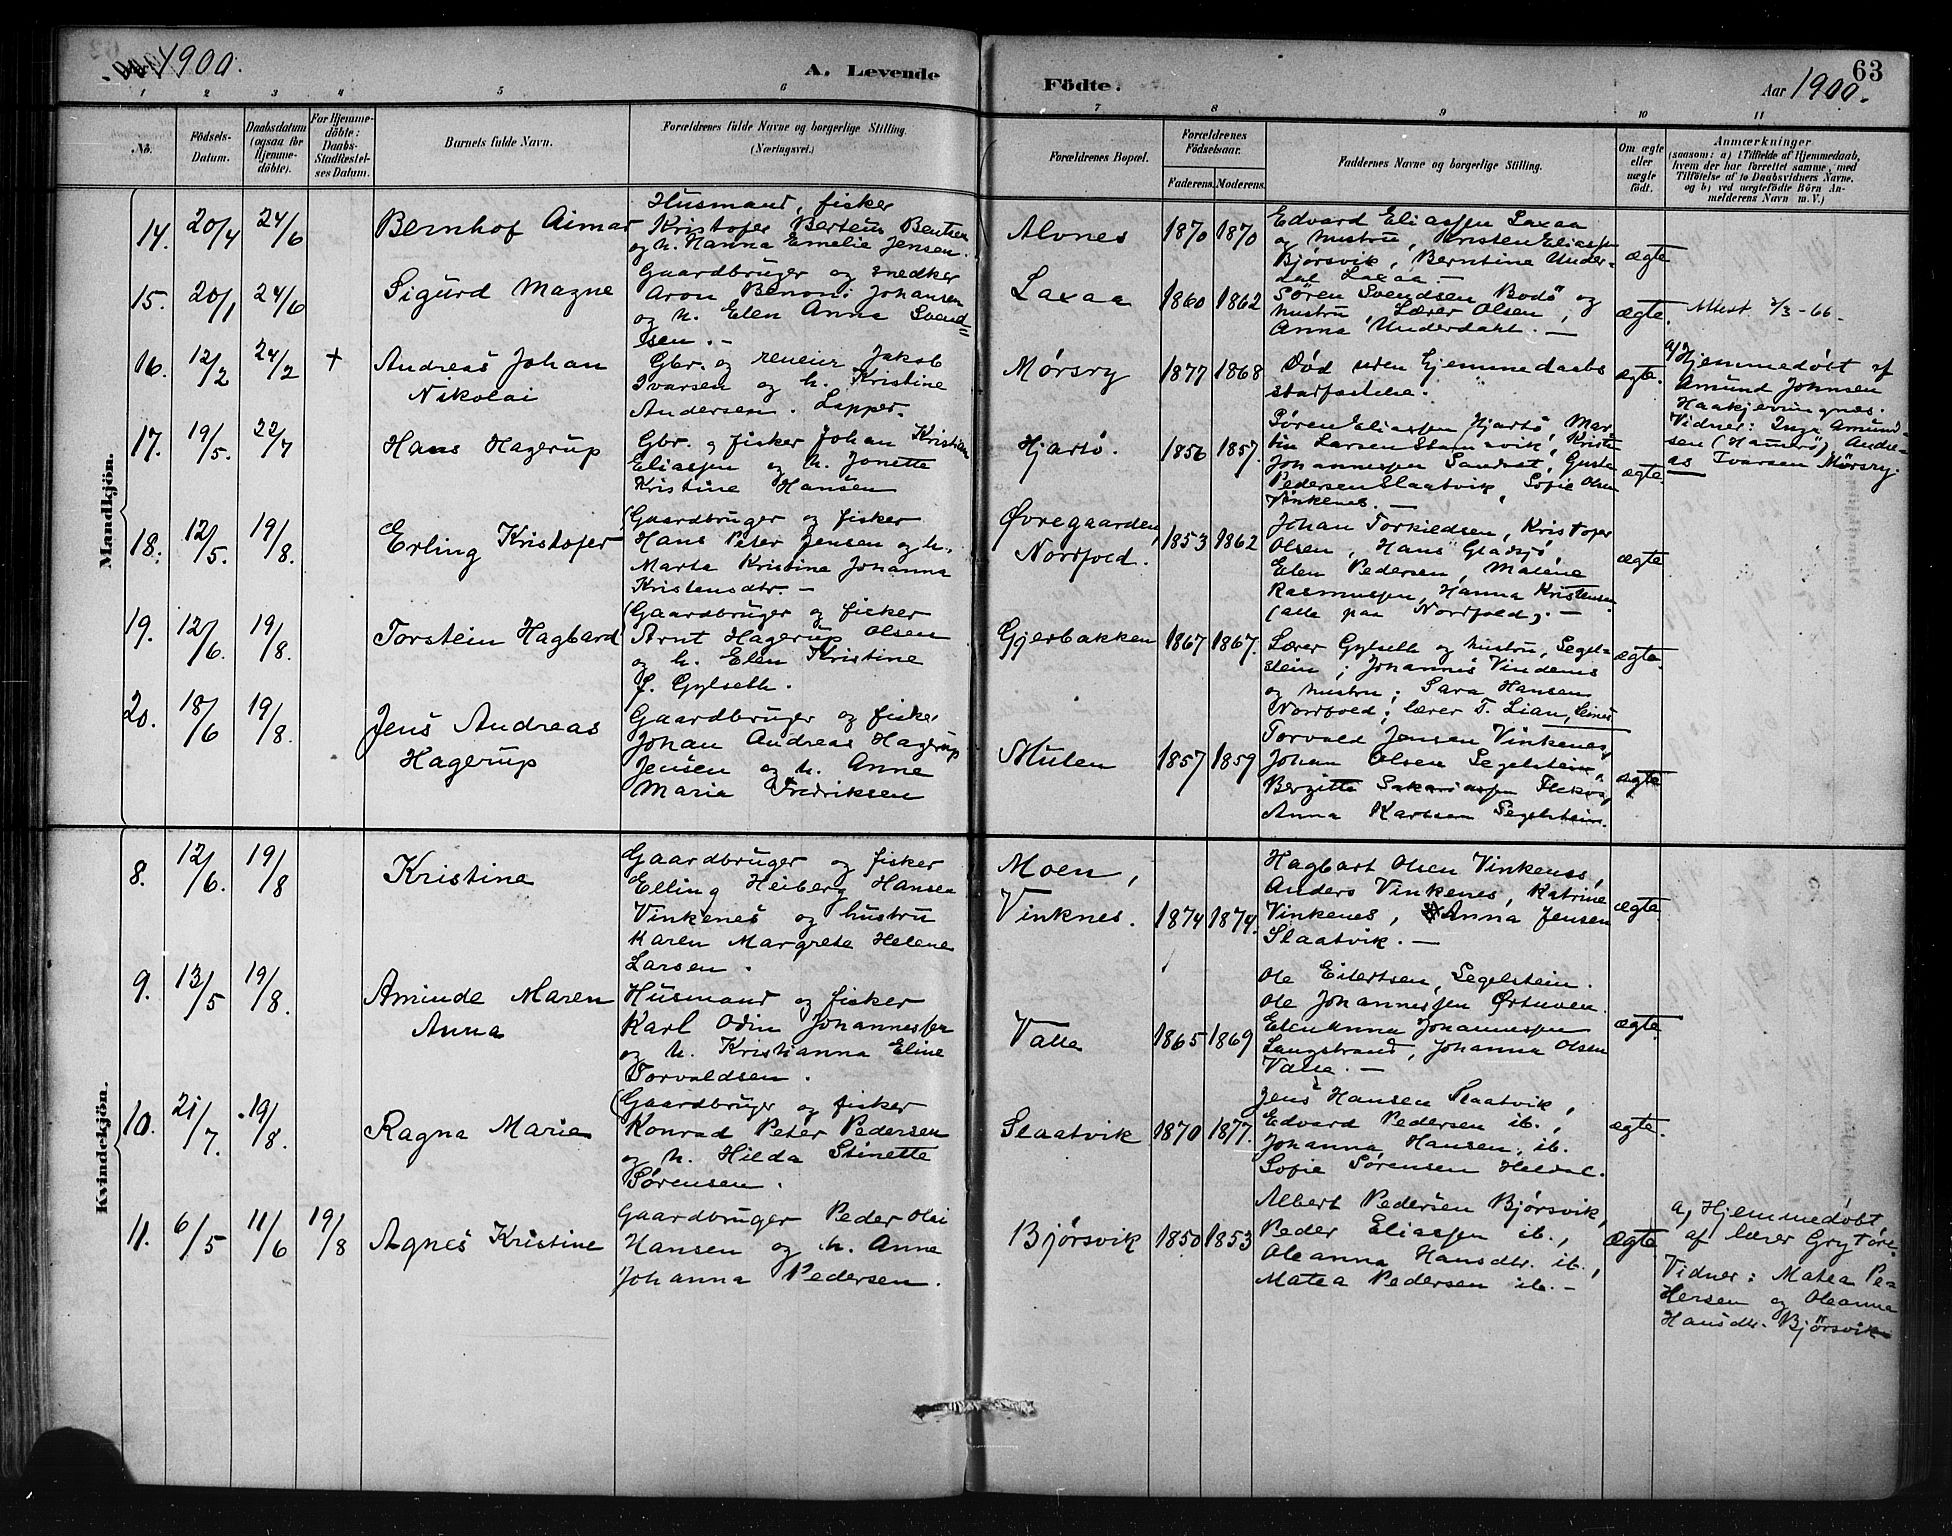 1900.
A. Levende
Födte.
63
Aar 1900.
1 2 3 4 5 6 7 8 9 10 11
No.
Födsels-Datum.
Daabsdatum (ogsaa for Hjemmedöbte).
For Hjemmedöbte: Daabs-Stadfæstelses Datum.
Barnets fulde Navn.
Forældrenes fulde Navne og borgerlige Stilling.
(Næringsvei.)
Forældrenes Bopæl.
Forældrenes Födselsaar.
Faderens. Moderens.
Faddernes Navne og borgerlige Stilling.
Om ægte eller uægte födt.
Anmærkninger
(saasom: a) i Tilfælde af Hjemmedaab,
hvem der har forrettet samme, med
Tilföielse af to Daabsvidners Navne.
og b) ved uægtefödte Börn Anmelderens Navn m.V.)
Mandkjön.
14. 20/4 24/6 Bernhof Aimar
Husmand, fisker
Kristofer Berteus Bentsen
og h. Hanna Emelie Jensen.
Alvnes 1870 1870
Edvard Eliassen Laxaa
og hustru, Kristen Eliassen
Bjørsvik, Berntine Under-
dal Laxaa –
ægte
15. 20/1 24/6 Sigurd Magne
Gaardbruger og snedker
Aron Benoni Johansen
og h. Elen Anna Svend=
sen. –
Laxaa 1860 1862
Søren Svendsen Bodø og
hustru, Lærer Olsen,
Anna Underdahl. –
ægte.
Attest 2/3-66-
16. 12/2 24/2 + Andreas Johan
Nikolai
Gbr. og reneier Jakob
Ivarsen og h. Kristine
Andersen. Lapper.
Mørsry 1877 1868
Død uden hjemmedaabs
stadfæstelse.
ægte.
a) Hjemmedøbt af
Amund Johnsen
Haakjevringnes.
Vidner: Inga Amund-
sen (Hammerø) Andre-
as Ivarsen Mørsry.
17. 19/5. 22/7 Hans Hagerup
Gbr. og fisker Johan Kristian
Eliassen og h. Jonette
Kristine Hansen
Hjartø. 1856 1857.
Søren Eliassen Hjartø, Mar-
tin Larsen Stamsvik, Kristi
Johannessen Sandvat, Gusta
Pedersen Slaatvik, Sofie Olsen
Vinkenes. –
ægte.
18. 12/5. 19/8. Erling Kristofer
Gaardbruger og fisker
Hans Peter Jensen og h.
Marta Kristine Johanna
Kristensdtr. –
Øvregaarden,
Nordfold.
1853 1862
Johan Torkildsen, Kristofer
Olsen, Hans Gladsjø,
Elen Pedersen, Malene
Rasmussen, Hanna Kristensen
(alle paa Nordfold). –
ægte
19. 12/6. 19/8. Torstein Hagbard
Gaardbruger og fisker
Arnt Hagerup Olsen
og h. Elen Kristine
f. Gylseth.
Gjerbakken 1867 1867.
Lærer Gylseth og hustru, Segel-
stein; Johannes Vindenes
og hustru; Sara Hansen
Nordfold; lærer T. Lian, Leines
ægte.
20. 18/6 19/8. Jens Andreas
Hagerup
Gaardbruger og fisker
Johan Andreas Hagerup
Jensen og h. Anne
Maria Fredriksen
Mulen 1857 1859
Torvald Jensen Vinkenes,
Johan Olsen Segelstein,
Bergitte Sakariassen Flekva,
Anna Karlsen Segelstein.
ægte
Kvindekjön.
8. 12/6. 19/8 Kristine
Gaardbruger og fisker
Elling Heiberg Hansen
Vinkenes og hustru
Karen Margrete Helene
Larsen.
Moen,
Vinknes. 1874 1874.
Hagbart Olsen Vinkenes,
Anders Vinkenes, Katrine
Vinkenes, Anna Jensen
Slaatvik. –
ægte
9. 13/5 19/8. Aminde Maren
Anna
Husmand og fisker
Karl Odin Johannessen
og h. Kristianna Eline
Torvaldsen.
Valle 1865 1869
Ole Eilertsen, Segelstein.
Ole Johannessen Ørtuven
Elen Anna Johannessen
Langstrand, Johanna Olsen
Valle. –
ægte.
10. 21/7. 19/8. Ragna Marie
Gaardbruger og fisker
Konrad Peter Pedersen
og h. Hilda Stinette
Sørensen.
Slaatvik 1870 1877.
Jens Hansen Slaatvik,
Edvard Pedersen ib.,
Johanna Hansen, ib.
Sofie Sørensen Heldal.
ægte.
11. 6/5 11/6 19/8 Agnes Kristine
Gaardbruger Peder Olai
Hansen og h. Anne
Johanna Pedersen.
Bjørsvik 1850 1853
Albert Pedersen Bjørsvik,
Peder Eliassen ib.,
Oleanna Hansdtr. ib.,
Matea Pedersen ib. –
ægte.
a, Hjemmedøbt,
af lærer Grytøre.
Vidner: Matea Pe-
dersen og Oleanna
Hansdtr. Bjørsvik